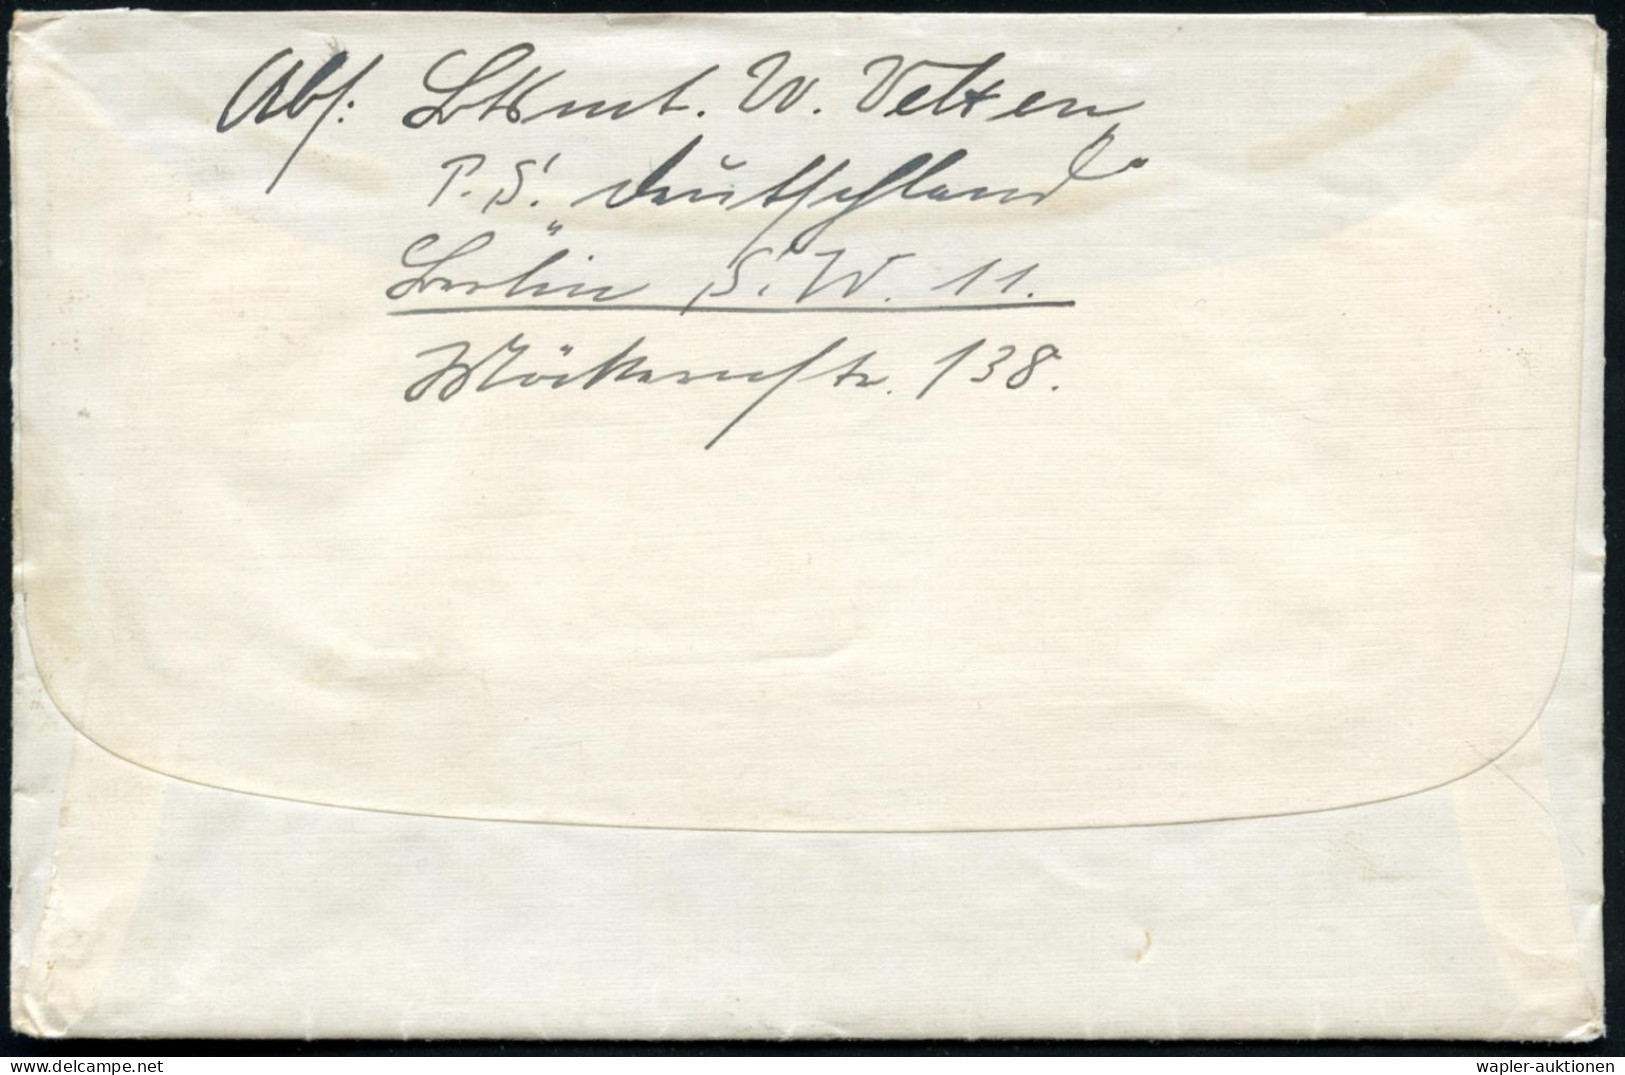 Abs: Ltsmt. W. Velten
P.S. „Deutschland“
Berlin S.W. 11.
Möckernstr. 138.
wapler-auktionen